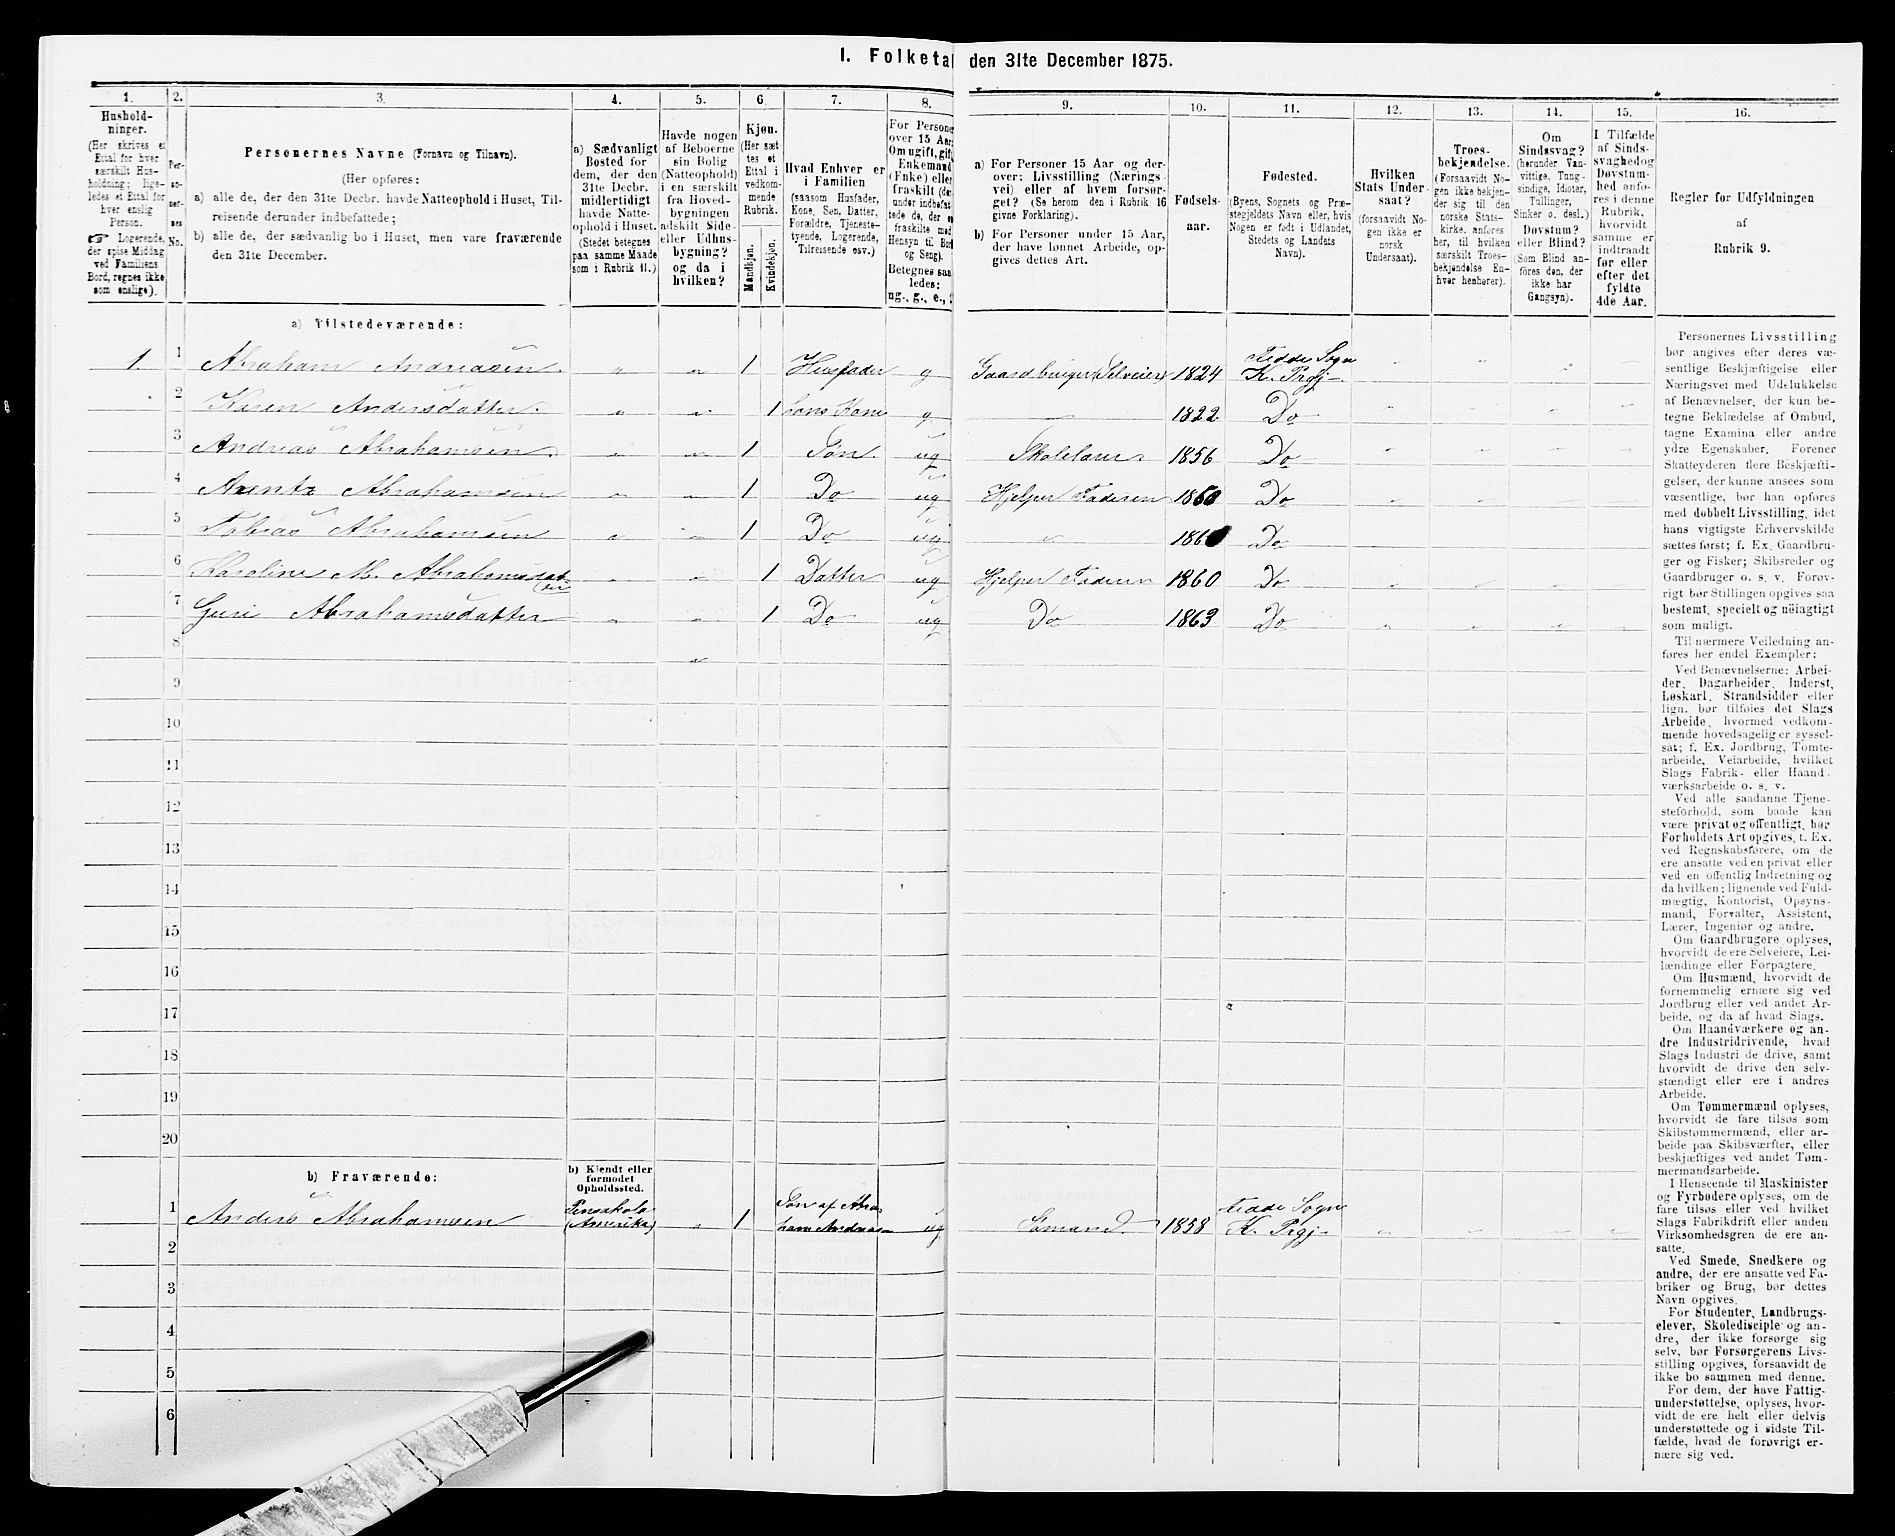 I. Folketa den 31te December 1875.
1. 2. 3. 4. 5. 6. 7. 8. 9. 10. 11. 12. 13. 14. 15. 16.
Hushold-
ninger.
(Her skrives et
Ettal for hver
særskilt Hus-
holdning; lige-
ledes et Ettal for
hver enslig
Person.
☞ Logerende,
der spise Middag
ved Familiens
Bord, regnes ikke
som enslige).
Per-
so-
ner-
nes
No.
Personernes Navne (Fornavn og Tilnavn).
(Her opføres:
a) alle de, der den 31te Decbr. havde Natteophold i Huset, Til-
reisende derunder indbefattede;
b) alle de, der sædvanlig bo i Huset, men vare fraværende
den 31te December.
a) Sædvanligt
Bosted for
dem, der den
31te Decbr.
midlertidigt
havde Natte-
ophold i Huset.
(Stedet betegnes
paa samme Maade
som i Rubrik 11.)
Havde nogen
af Beboerne
sin Bolig
(Natteophold)
i en særskilt
fra Hoved-
bygningen
adskilt Side-
eller Udhus-
bygning?
og da i
hvilken?
Kjøn.
(Her sæt-
tes et
Ettal i
vedkom-
mende
Rubrik.
Mandkjøn.
Kvindekjøn.
Hvad Enhver er
i Familien
(saasom Husfader,
Kone, Søn, Datter,
Forældre, Tjeneste-
tyende, Logerende,
Tilreisende osv.)
For Persone
over 15 Aar
Om ugift, gif
Enkemand
(Enke) elle
fraskilt (de
under indbefat
tede de, der e
fraskilte med
Hensyn til Bor
og Seng).
Betegnes saa
ledes:
ug., g., e.,
a) For Personer 15 Aar og der-
over: Livsstilling (Nærings-
vei) eller af hvem forsør-
get? (Se herom den i Rubrik 16
givne Forklaring).
b) For Personer under 15 Aar,
der have lønnet Arbeide, op-
gives dettes Art.
Fødsels-
aar.
Fødested.
(Byens, Sognets og Præ-
stegjeldets Navn eller, hvis
Nogen er født i Udlandet,
Stedets og Landets
Navn).
Hvilken
Stats Under-
saat?
(forsaavidt No-
gen ikke er
norsk
Undersaat).
Troes-
bekjendelse.
(Forsaavidt No-
gen ikke bekjen-
der sig til den
norske Stats-
kirke, anføres
her, til hvilken
særskilt Troes-
bekjendelse En-
hver henhører).
Om
Sindssvag?
(herunder Van-
vittige, Tung-
sindige, Idioter,
Tullinger,
Sinker o. desl.)
Døvstum?
eller Blind?
(Som Blind an-
føres den, der
ikke har
Gangsyn).
I Tilfælde
af Sinds-
svaghed og
Døvstum-
hed anfø-
res i denne
Rubrik,
hvorvidt
samme er
indtraadt
før eller
efter det
fyldte
4de Aar.
Regler for Udfyldningen
af
Rubrik 9.
a) Tilstedeværende:
1. 1 Abraham Andreasen " " 1 Husfader g Gaardbruger (Selveier) 1824 Fedde Sogn
K. Prgj
2 Karen Andersdatter " " 1 hans Kone g 1822 Do
3 Andreas Abrahamsen " " 1 Søn ug Skolelærer 1856 Do
4 Arentz Abrahamsen " " 1 Do ug Hjelper Faderen Do
5 Tobias Abrahamsen " " 1 Do ug " Do
6 Karoline M. Abrahamsdat-
ter " " 1 Datter ug Hjelper Faderen 1860 Do
7 Guri Abrahamsdatter " " 1 Do ug Do 1863 Do
8
9
10
11
12
13
14
15
16
17
18
19
20
b) Fraværende:
b) Kjendt eller
formodet
Opholdssted.
1 Anders Abrahamsen Pensakola
(Amerika) " 1 Søn af Abra-
ham Andreasen ug Sømand 1858 Fedde Sogn
K. Prgj
2
3
4
5
6
Personernes Livsstilling
bør angives efter deres væ-
sentlige Beskjæftigelse eller
Næringsvei med Udelukkelse
af Benævnelser, der kun be-
tegne Beklædelse af Ombud,
tagne Examina eller andre
ydre Egenskaber. Forener
Skatteyderen flere Beskjæfti-
gelser, der kunne ansees som
væsentlige, bør han opføres
med dobbelt Livsstilling, idet
hans vigtigste Erhvervskilde
sættes først; f. Ex. Gaardbru-
ger og Fisker; Skibsreder og
Gaardbruger o. s. v. Forøv-
rigt bør Stillingen opgives saa
bestemt, specielt og nöiagtigt
som muligt.
Til nærmere Veiledning an-
føres her endel Exempler:
Ved Benævnelserne: Arbei-
der, Dagarbeider, Inderst,
Løskarl, Strandsidder eller
lign. bør tilføies det Slags
Arbeide, hvormed vedkom-
mende hovedsagelig er syssel-
sat; f. Ex. Jordbrug, Tomte-
arbeide, Veiarbeide, hvilket
Slags Fabrik- eller Haand-
værksarbeide o. s. v.
Ved alle saadanne Tjene-
steforhold, som baade kan
være privat og offentligt, bør
Forholdets Art opgives, t. Ex.
ved Regnskabsførere, om de
ere ansatte ved en privat eller
ved en offentlig Indretning og
da hvilken; lignende ved Fuld-
mægtig, Kontorist, Opsyns-
mand, Forvalter, Assistent,
Lærer, Ingeniør og andre.
Om Gaardbrugere oplyses,
hvorvidt de ere Selveiere, Lei-
lændinge eller Forpagtere.
Om Husmænd, hvorvidt de
fornemmelig ernære sig ved
Jordbrug eller ved andet Ar-
beide, og da af hvad Slags.
Om Haandværkere og an-
dre Industridrivende, hvad
Slags Industri de drive, samt
hvorvidt de drive den selv-
stændigt eller ere i andres
Arbeide.
Om Tømmermænd oplyses,
hvorvidt de fare tilsøs som
Skibstømmermænd, eller ar-
beide paa Skibsværfter, eller
beskjæftiges ved andet Tøm-
mermandsarbeide.
I Henseende til Maskinister
og Fyrbødere oplyses, om de
fare tilsøs eller ved hvilket
Slags Fabrikdrift eller anden
Virksomhedsgren de ere an-
satte.
Ved Smede, Snedkere og
andre, der ere ansatte ved Fa-
briker og Brug, bør dettes
Navn opgives.
For Studenter, Landbrugs-
elever, Skoledisciple og an-
dre, der ikke forsørge sig
selv, bør Forsørgerens Livs-
stilling opgives, forsaavidt de
ikke bo sammen med denne.
For dem, der have Fattig-
understøttelse, oplyses, hvor-
vidt de ere helt eller delvis
understøttede og i sidste Til-
fælde, hvad de forøvrigt er-
nære sig ved.